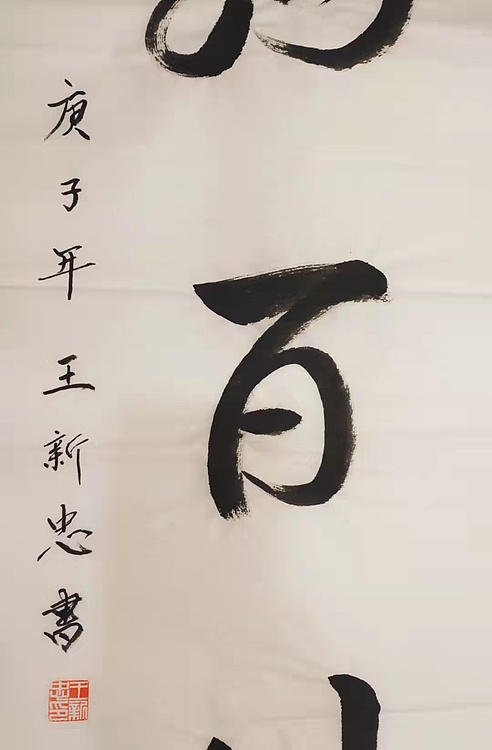 百
庚子年 王新忠書
王新忠印